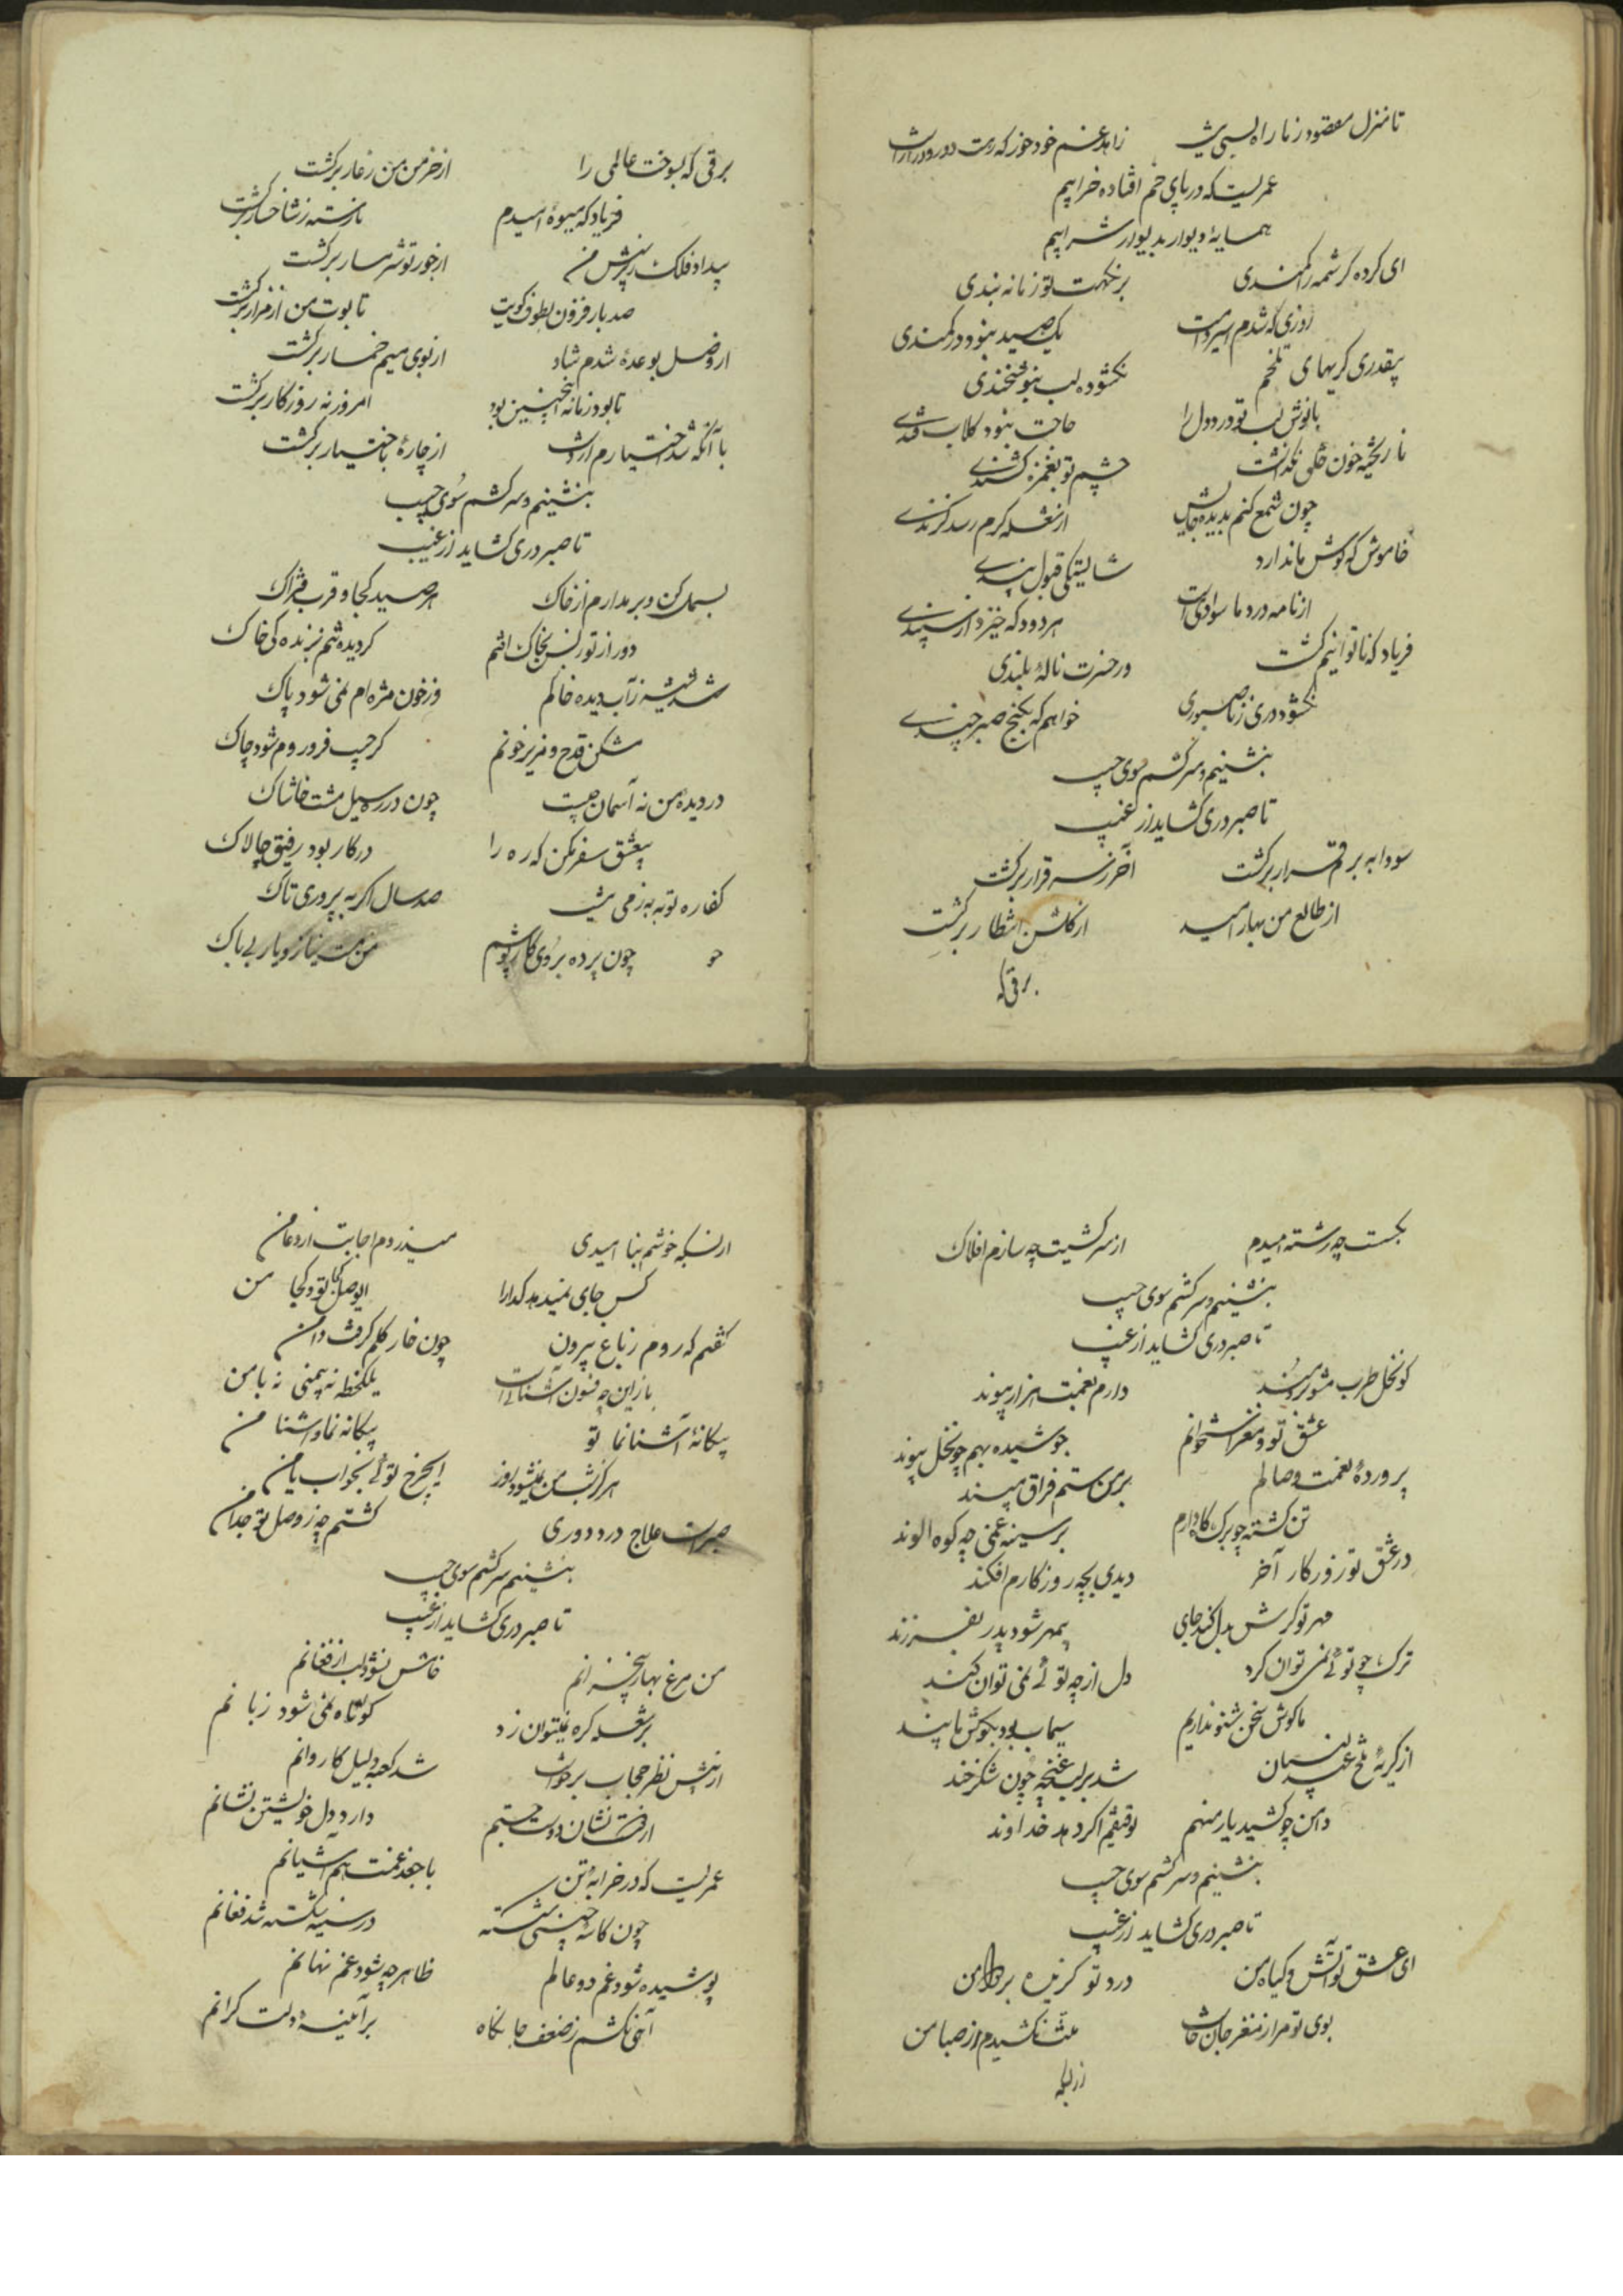 تا منزل مقصود ز ما راه بسی نیست زاهد غم خود خور که رهت دور و دراز است
عمریست که در پای خم افتاده خرابیم
همسایهٔ دیوار بدیوار شرابیم
ای کرده کرشمه را کمندی بر نکهت تو زمانه بندی
روزی که شدم اسیر دامت یک صید نبود در کمندی
بیقدری کریهای تلخم نکشوده لب بنوشخندی
با نوش لب تو درد دل را حاجت نبود کلاب قندی
نا ریخته خون خلقی نکذاشت چشم تو بغمزه کشندی
چون شمع کنم بدیده جایش از شعله کرم رسد کزندی
خاموش که کوش ما ندارد شایستکی قبول پندی
از نامه درد ما سوادی است هر دود که خیزد از سپندی
فریاد که ناتوانیم کشت در حسرت نالهٔ بلندی
نکشود دری ز ناصبوری خواهم که بکنج صبر چندی
بنشینم و سر کشم سوی جیب
تا صبر دری کشاید از غیب
سودا به برم قرار برکشت آخر ز سر قرار برکشت
از طالع من بهار امید از کلشن انتظار برکشت
برقی که
برقی که بسوخت عالمی را از خرمن من ز عار برکشت
فریاد که میوهٔ امیدم نارسته ز شاخسار برکشت
بیداد فلک ز پرسش من از جور تو شرمسار برکشت
صد بار فزون بطوف کویت تابوت من از مزار برکشت
از وصل بوعده شدم شاد از بوی میم خمار برکشت
تا بود زمانه اینچنین بود امروز نه روزکار برکشت
با آنکه شد اختیارم از دست از چارهٔ باختیار برکشت
بنشینم و سر کشم سوی جیب
تا صبر دری کشاید از غیب
بسمل کن و برمدارم از خاک هر صید کجا و قرب فتراک
دور از تو ز بس بخاک افتم کردیده تنم نبزنده کی خاک
شد شسته ز آب دیده خاکم وز خون مژه‌ام نمی شود پاک
مشکن قدح و مریز خونم کر جیب فرو روم شود چاک
در دیدهٔ من نه آسمان چیست چون در ره سیل مشت خاشاک
بیعشق سفر مکن که ره را در کار بود رفیق چالاک
کفاره توبه به ز می نیست صد سال اکر بپروری تاک
چون پرده بروی کار پوشم من مست نیاز و یار بی باک
بکسست چه رشته امیدم از سرکشیت چه سازم افلاک
بنشینم و سر کشم سوی جیب
تا صبر دری کشاید از غیب
کو نخل طرب مشو برومند دارم بغمت هزار پیوند
عشق تو و مغز استخوانم جوشیده بهم چو نخل پیوند
پروردهٔ نعمت وصالم بر من ستم فراق مپسند
تن کشته چو برک کاه دارم بر سینه غمی چه کوه الوند
در عشق تو زور کار آخر دیدی بچه روزکارم افکند
مهر تو کرش بدل کند جای بیمهر شود پدر بفرزند
ترک چو توئی نمی توان کرد دل از چه توئی نمی توان کند
ما کوش سخن شنو نداریم سیماب بود بکوش ما پند
از کریهٔ تلخ عندلیبان شد بر لب غنچه چون شکرخند
دامن چو کشید یار منهم توفیقم اکر دهد خداوند
بنشینم و سر کشم سوی جیب
تا صبر دری کشاید از غیب
ای عشق تو آتش و کیاه من درد تو کزیده بر دوا من
بوی تو مرا ز مغز جان خاست منت نکشیدم از صبا من
از بسکه
از بسکه خوشم بنا امیدی میدزدم اجابت از دعا من
کس جای نمیدهد کدا را ایوصل کجا تو و کجا من
کفتم که روم ز باغ بیرون چون خار کلم کرفت دامن
باز این چه فسون آشنائیست یکلحظه نه بیمنی نه با من
بیکانهٔ آشنا نما تو بیکانه نما و آشنا من
هرکز شب من نمیشود روز ایچرخ توئی بخواب یا من
صبرست علاج درد دوری کشتم چه ز وصل تو جدا من
بنشینم و سر کشم سوی جیب
تا صبر دری کشاید از غیب
من مرغ بهار بیخزانم خامش نشود لب از فغانم
بر شعله کره نمیتوان زد کوتاه نمی شود زبانم
از پیش نظر حجاب برخواست شد کعبه دلیل کاروانم
از هر که نشان دوست جستم دارد دل خویشتن نشانم
عمریست که در خرابه تن با جغد غمت هم آشیانم
چون کاسهٔ چینی شکسته در سینه شکسته شد فغانم
پوشیده شود غم دو عالم ظاهر چه شود غم نهانم
آخی نکشم ز ضعف جانکاه بر آئینهٔ دلت کرانم